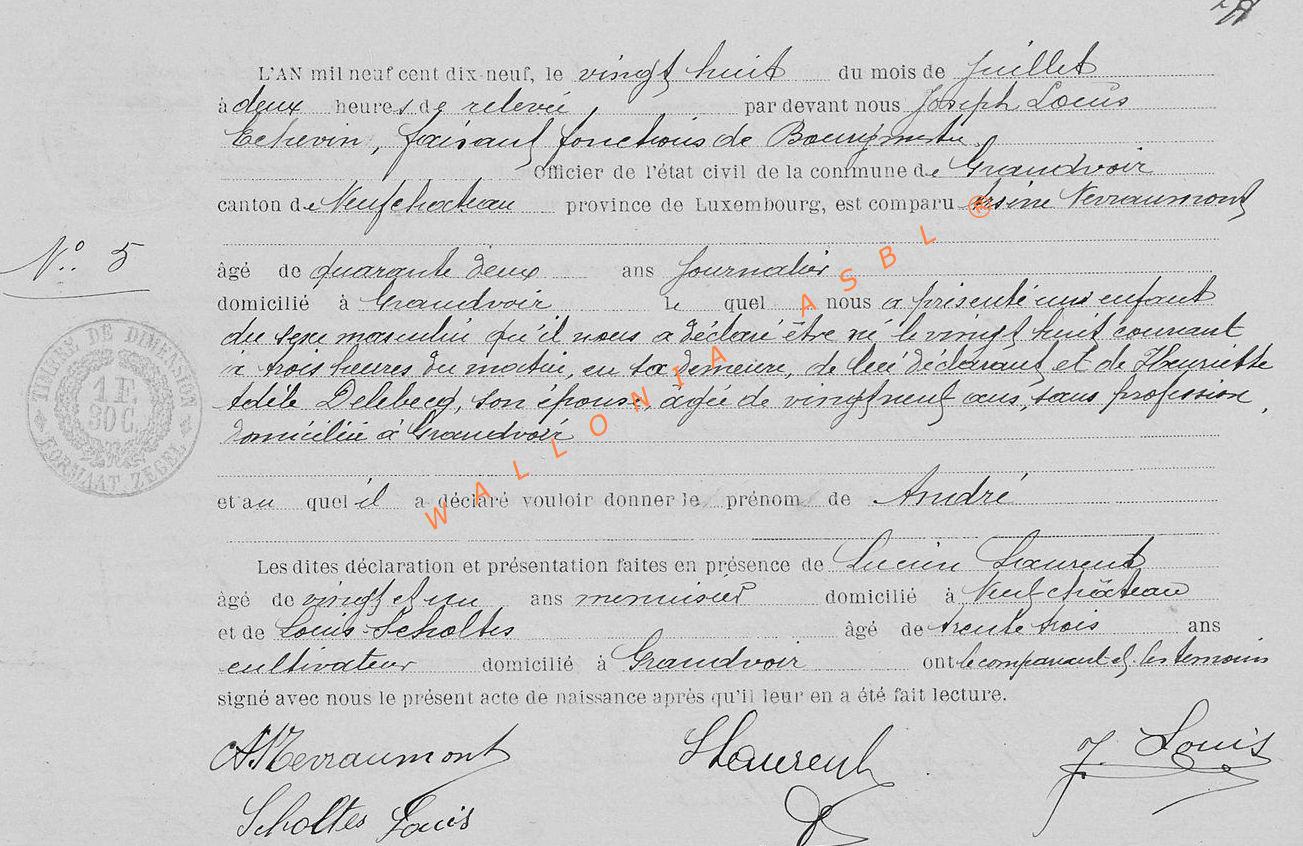 L'AN mil neuf cent dix-neuf, le vingt huit du mois de Juillet
à deux heures de relevée par devant nous Joseph Louis
Echevin, faisant fonctions de Bourgmestre
Officier de l'état civil de la commune de Grandvoir
canton de Neufchateau province de Luxembourg, est comparu Arsène Nevraumont
N° 5
âgé de quarante deux ans Journalier
domicilié à Grandvoir le quel nous a présenté un enfant
du sexe masculin qu'il nous a déclaré être né le vingt huit courant
à trois heures du matin, en sa demeure, de lui déclarant et de Henriette
Adèle Delebecq, son épouse, âgée de vingt neuf ans, sans profession,
domiciliée à Grandvoir
TIMBRE DE DIMENSION
1 F.
30 C.
FORMAAT. ZEGEL
et au quel il a déclaré vouloir donner le prénom de André
WALLONIA ASBL ®
Les dites déclaration et présentation faites en présence de Lucien Laurent
âgé de vingt et un ans menuisier domicilié à Neufchâteau
et de Louis Scholtes âgé de trente trois ans
cultivateur domicilié à Grandvoir ont le comparant et les témoins
signé avec nous le présent acte de naissance après qu'il leur en a été fait lecture.
A Nevraumont
L Laurent
J. Louis
Scholtes Louis